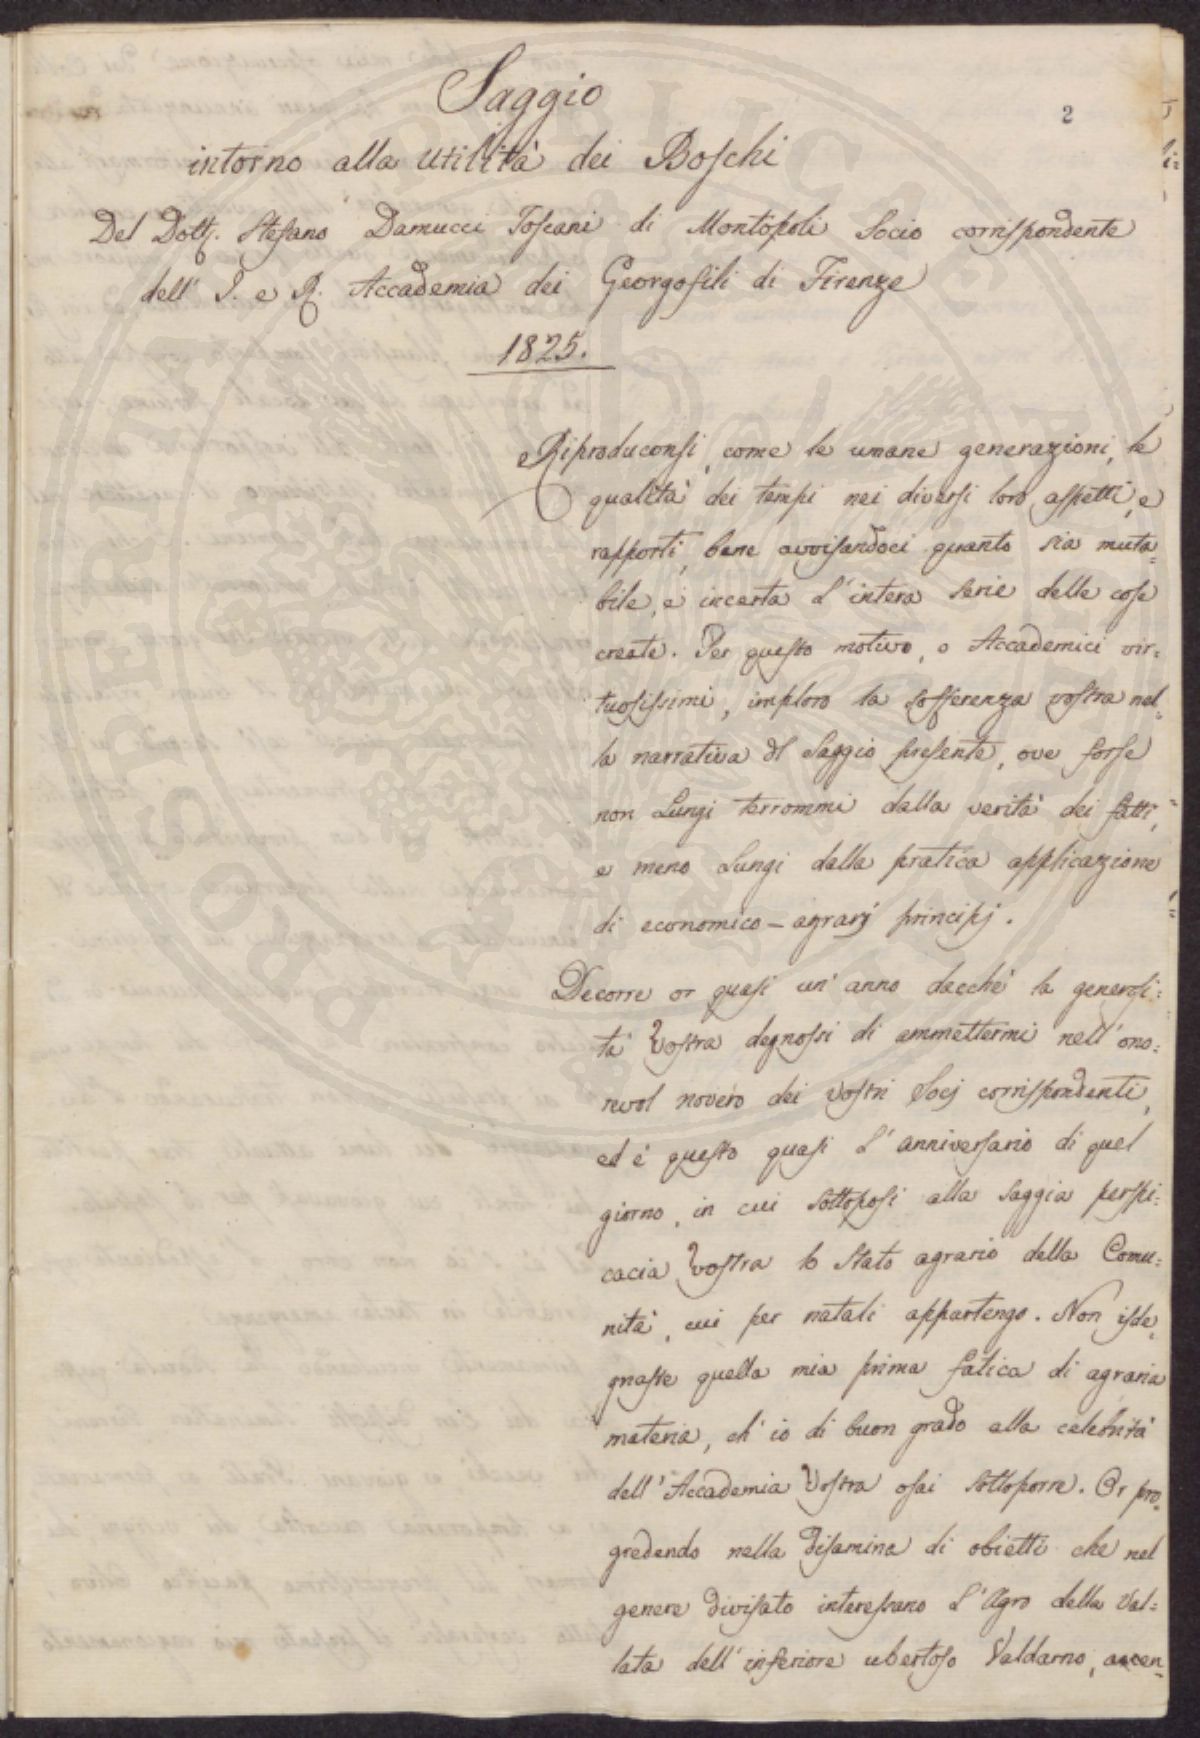 2
Saggio
intorno alla utilità dei Boschi
Del Dott. Stefano Damucci Toscani di Montopoli Socio corrispondente
dell' I. e R. Accademia dei Georgofili di Firenze
1825.
Riproduconsi, come le umane generazioni, le
qualità dei tempi nei diversi loro aspetti, e
rapporti, bene avvisandoci quanto sia muta=
bile, e incerta l'intera serie delle cose
create. Per questo motivo, o Accademici vir=
tuosissimi, imploro la sofferenza vostra nel=
la narrativa del Saggio presente, ove forse
non Lungi terrommi dalla verità dei fatti,
e meno Lungi dalla pratica applicazione
di economico-agrarj principj.
Decorre or quasi un' anno dacchè la generosi=
tà Vostra degnossi di ammettermi nell' ono=
revol novero dei Vostri Socj corrispondenti,
ed è questo quasi l'anniversario di quel
giorno, in cui sottoposi alla saggia perspi=
cacia Vostra lo stato agrario della Comu=
nità, cui per natali appartengo. Non isde=
gnaste quella mia prima fatica di agraria
materia, ch' io di buon grado alla celebrità
dell' Accademia Vostra osai sottoporre. Or pro=
gredendo nella disamina di obietti che nel
genere divisato interessano l'Agro della Val=
lata dell' inferiore ubertoso Valdarno, accen=
PUBLICAE